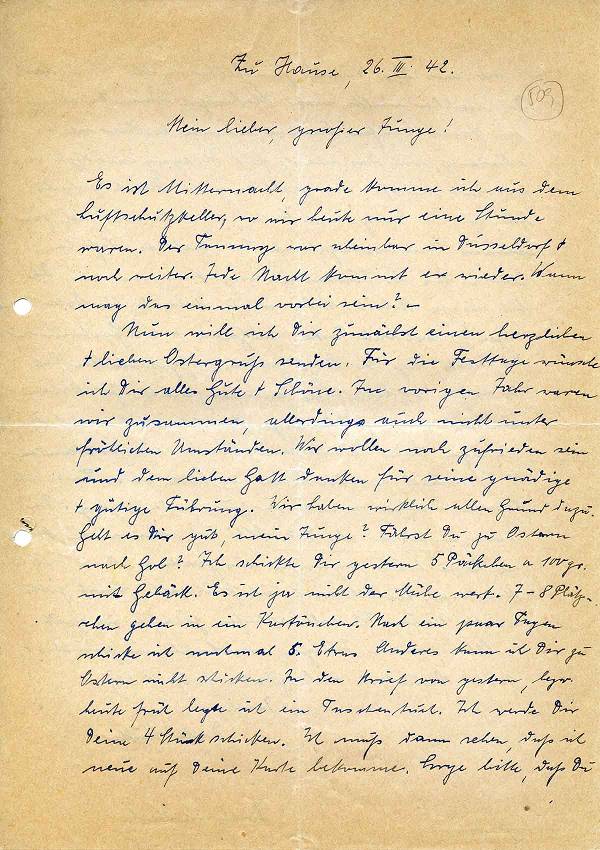 Zu Hause, 26. III. 42.
509
Mein lieber, großer Junge!
Es ist Mitternacht, grade komme ich aus dem
Luftschutzkeller, wo wir heute nur eine Stunde
waren. Der Tommy war scheinbar in Düsseldorf +
noch weiter. Jede Nacht kommt er wieder. Wann
mag das einmal vorbei sein? –
Nun will ich Dir zunächst einen herzlichen
+ lieben Ostergruß senden. Für die Festtage wünsche
ich Dir alles Gute + Schöne. Im vorigen Jahr waren
wir zusammen, allerdings auch nicht unter
fröhlichen Umständen. Wir wollen noch zufrieden sein
und dem lieben Gott danken für seine gnädige
+ gütige Führung. Wir haben wirklich allen Grund dazu.
Geht es Dir gut, mein Junge? Fährst Du zu Ostern
nach Hol? Ich schickte Dir gestern 5 Päckchen a 100 gr.
mit Gebäck. Es ist ja nicht der Mühe wert. 7-8 Plätz-
chen gehen in ein Kartönchen. Nach ein paar Tagen
schicke ich nochmal 5. Etwas Anderes kann ich Dir zu
Ostern nicht schicken. In den Brief von gestern, bezw.
heute früh legte ich ein Taschentuch. Ich werde Dir
Deine 4 Stück schicken. Ich muß dann sehen, daß ich
neue auf Deine Karte bekomme. Sorge bitte, daß Du